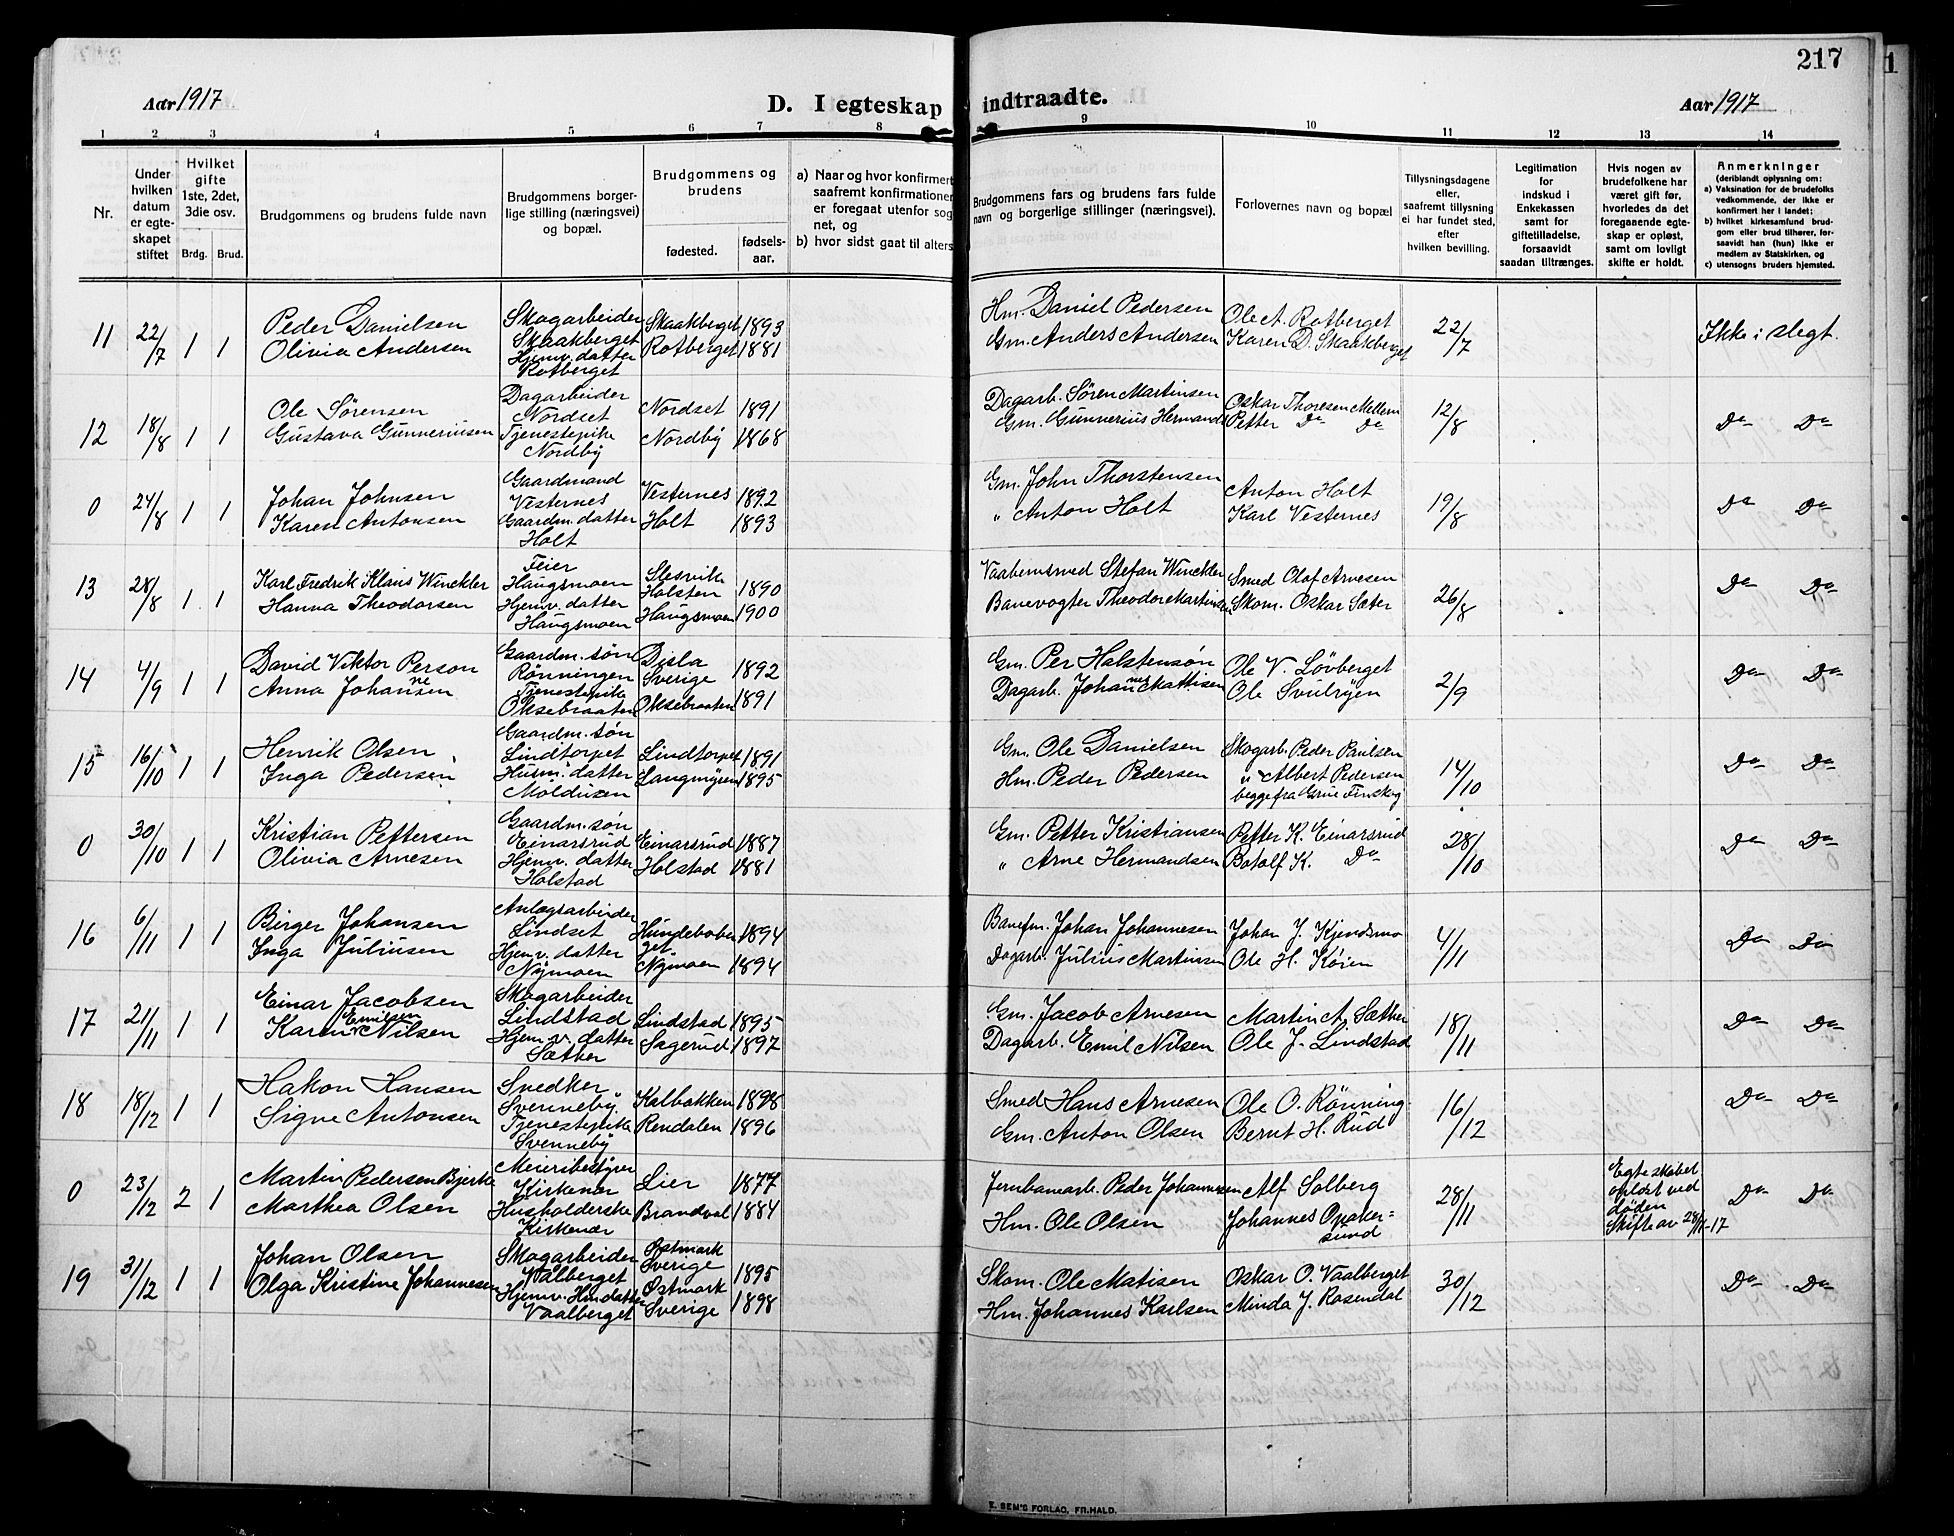 217
Aar 1917
D. I egteskap indtraadte.
Aar 1917
1 2 3 4 5 6 7 8 9 10 11 12 13 14
Nr.
Under hvilken datum er egteskapet stiftet
Hvilket gifte 1ste, 2det, 3die osv.
Brdg. Brud.
Brudgommens og brudens fulde navn
Brudgommens borgerlige stilling (næringsvei) og bopæl.
Brudgommens og brudens
fødested.
fødselsaar.
a) Naar og hvor konfirmert, saafremt konfirmationen er foregaat utenfor sognet, og
b) hvor sidst gaat til alters
Brudgommens fars og brudens fars fulde navn og borgerlige stillinger (næringsvei).
Forlovernes navn og bopæl
Tillysningsdagene eller, saafremt tillysning ei har fundet sted, efter hvilken bevilling.
Legitimation for indskud i Enkekassen samt for giftetilladelse, forsaavidt saadan tiltrænges.
Hvis nogen av brudefolkene har været gift før, hvorledes da det foregaaende egteskap er opløst, samt om lovligt skifte er holdt.
Anmerkninger
(deriblandt oplysning om:
a) Vaksination for de brudefolks vedkommende, der ikke er konfirmert her i landet:
b) hvilket kirkesamfund brudgom eller brud tilhører, forsaavidt han (hun) ikke er medlem av Statskirken, og
c) utensogns bruders hjemsted.
11 22/7 1 1
Peder Danielsen
Olivia Andersen
Skogarbeider
Skaakberget
Hjemv. datter
Rotberget
Skaakberget 1893
Rotberget 1881
Hm. Daniel Pedersen
Gm. Anders Andersen
Ole A. Rotberget
Karen D. Skaakberget
22/7
Ikke i slegt.
12 18/8 1 1
Ole Sørensen
Gustava Gunneriusen
Dagarbeider
Nordset
Tjenestepike
Nordby
Nordset 1891
Nordby 1868
Dagarb. Søren Martinsen
Gm. Gunnerius Hermands
Oskar Thoresen Mellem
Petter Do Do
12/8
Do Do
0 24/8 1 1
Johan Johnsen
Karen Antonsen
Gaardmand
Vesternes
Gaardm. datter
Holt
Vesternes 1892
Holt 1893
Gm. John Thorstensen
" Anton Holt
Anton Holt
Karl Vesternes
19/8
Do Do
13 28/8 1 1
Karl Fredrik Klaus Winckler
Hanna Theodorsen
Feier
Haugsmoen
Hjemv. datter
Haugsmoen
Slesvik
Holsten 1890
Haugsmoen 1900
Vaabensmed Stefan Winckler
Banevogter Theodor Martinsen
Smed Olof Arnesen
Skom. Oskar Sæter
26/8
Do Do
14 4/9 1 1
David Viktor Person
Anna Johannesen
Gaardm. søn
Rönningen
Tjenestepike
Oksebraaten
Disla
Sverige 1892
Oksebraaten 1891
Gm. Per Halstensøn
Dagarb. Johannes Mattisen
Ole V. Lövberget
Ole Svulryen
2/9
Do Do
15 16/10 1 1
Henrik Olsen
Inga Pedersen
Gaardm. søn
Lindtorpet
Husm. datter
Lindtorpet 1891
Langmyren 1895
Gm. Ole Danielsen
Hm. Peder Pedersen
Skogarb. Peder Paulsen
" Albert Pedersen
begge fra Grue Finskog
14/10
Do Do
0 30/10 1 1
Kristian Pettersen
Olivia Arnesen
Gaardm. søn
Einarsrud
Hjemv. datter
Holstad
Einarsrud 1887
Holstad 1881
Gm. Petter Kristiansen
" Arne Hermandsen
Petter K. Einarsrud
Botolf K. Do
28/10
Do Do
16 6/11 1 1
Birger Johansen
Inga Juliusen
Anlægsarbeider
Lindset
Hjemv. datter
Nymoen
Hundeberget 1894
Nymoen 1894
Banefm. Johan Johannesen
Dagarb. Julius Martinsen
Johan J. Kjendsmo
Ole H. Köien
4/11
Do Do
17 21/11 1 1
Einar Jacobsen
Karen Emilsen Nilsen
Skogarbeider
Lindstad
Hjemv. datter
Sæther
Lindstad 1895
Sagerud 1897
Gm. Jacob Arnesen
Dagarb. Emil Nilsen
Martin A. Sæther
Ole J. Lindstad
18/11
Do Do
18 18/12 1 1
Hakon Hansen
Signe Antonsen
Svedker
Svenneby
Tjenestepike
Svenneby
Kalbakken 1898
Rendalen 1896
Smed Hans Arnesen
Gm. Anton Olsen
Ole O. Rönning
Bernt H. Rud
16/12
Do Do
0 23/12 2 1
Martin Pedersen Bjerke
Marthea Olsen
Meieribestyrer
Kirkenær
Husholderske
Kirkenær
Lier 1877
Brandval 1884
Jernbanearb. Peder Johannesen
Hm. Ole Olsen
Alf Solberg
Johannes Opakersund
28/11
Egteskabet opløst ved døden
Skifte av 28/11-17
Do Do
19 31/12 1 1
Johan Olsen
Olga Kristine Johannesen
Skogarbeider
Vålberget
Hjemv. Hm datter
Vaalberget
Östmark
Sverige 1895
Östmark
Sverige 1898
Skom. Ole Matisen
Hm. Johannes Karlsen
Oskar O. Vaalberget
Minda J. Rosendal
30/12
Do Do
E. SEM'S FORLAG, FR.HALD.